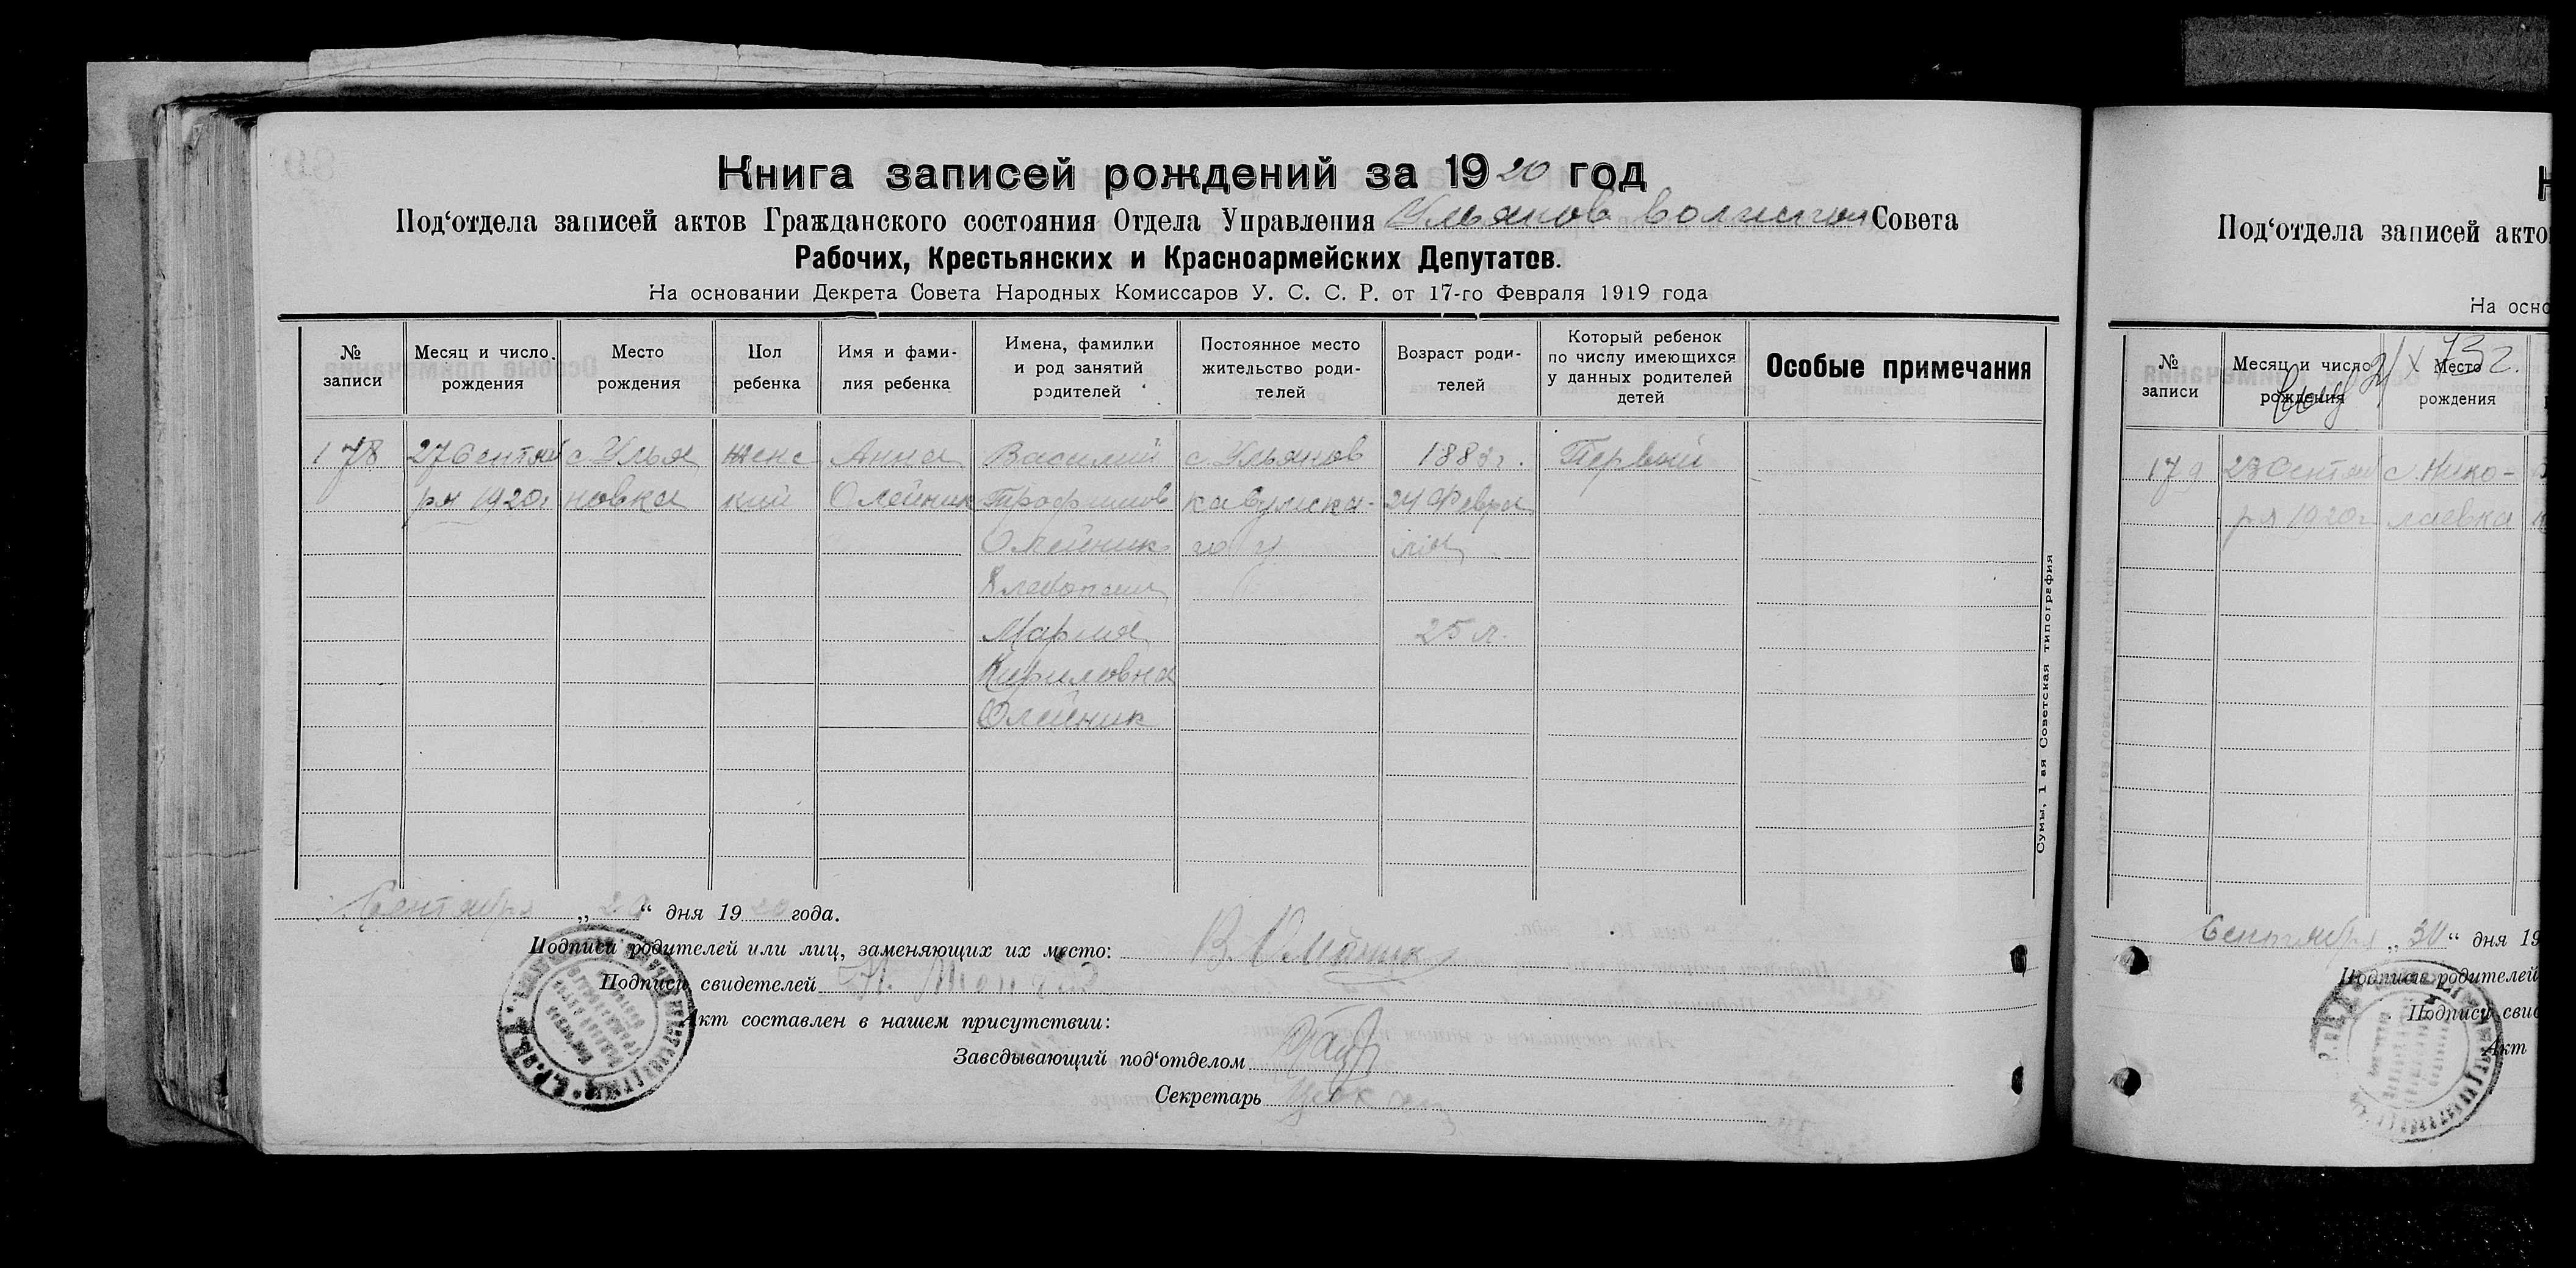 Книга записей рождений за 1920 год
Под‘отдела записей актов Гражданского состояния Отдела Управления Ульянов волисполк Совета
Рабочих, Крестьянских и Красноармейских Депутатов.
На основании Декрета Совета Народных Комиссаров У. С. С. Р. от 17-го Февраля 1919 года
№ записи
Месяц и число рождения
Место рождения
Пол ребенка
Имя и фами-
лия ребенка
Имена, фамилки
и род занятий
родителей
Постоянное место
жительство роди-
телей
Возраст роди-
телей
Который ребенок
по числу имеющихся
у данных родителей
детей
Особые примечания
178
27 Сентяб
ря 1920г
с Улья
новка
женс
кий
Анна
Олейник
Василий
Трофимов
Олейник
Мария
Кириловна
Олейник
с. Ульянов
ка Сумска-
го у
1883г.
24 Февра
ля
25 л.
Первый
Сумы, 1 ая Советская типография
Сентября „29“ дня 1920 года.
Подписи родителей или лиц, заменяющих их место: В. Олейник
Подписи свидетелей
Акт составлен в нашем присутствии:
Заведывающий под‘отделом
Секретарь
Под‘отдела записей акто
На осно
№ записи
Месяц и число рождения
Место рождения
73 г.
179
28 Сентяб
ря 1920г
с. Нико-
лаевка
Сентября „30“ дня 19
Подписи родителей
Подписи свид
Акт